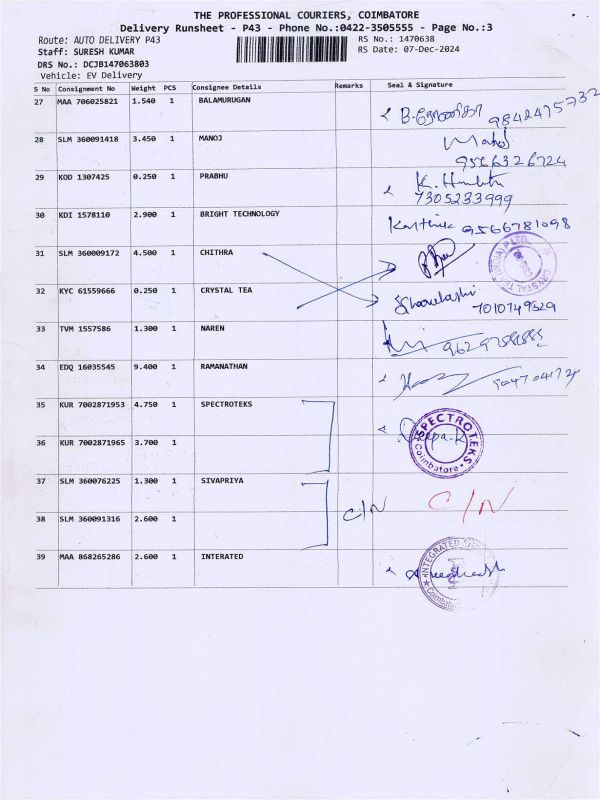 THE PROFESSIONAL COURIERS, COIMBATORE
Delivery Runsheet - P43 - Phone No.:0422-3505555 - Page No.:3
Route: AUTO DELIVERY P43 RS No.: 1470638
Staff: SURESH KUMAR RS Date: 07-Dec-2024
DRS No.: DCJB147063803
Vehicle: EV Delivery
S No Consignment No Weight PCS Consignee Details Remarks Seal & Signature
27 MAA 706025821 1.540 1 BALAMURUGAN
9842475732
28 SLM 360091418 3.450 1 MANOJ
9566326724
29 KOD 1307425 0.250 1 PRABHU
7305233999
30 KDI 1578110 2.900 1 BRIGHT TECHNOLOGY Karthik 9566781098
31 SLM 360009172 4.500 1 CHITHRA
32 KYC 61559666 0.250 1 CRYSTAL TEA
7010749529
33 TVM 1557586 1.300 1 NAREN
34 EDQ 16035545 9.400 1 RAMANATHAN
35 KUR 7002871953 4.750 1 SPECTROTEKS
SPECTROTEKS Coimbatore
Deepa.R
36 KUR 7002871965 3.700 1
37 SLM 360076225 1.300 1 SIVAPRIYA
C/N C/N
38 SLM 360091316 2.600 1
39 MAA 868265286 2.600 1 INTERATED